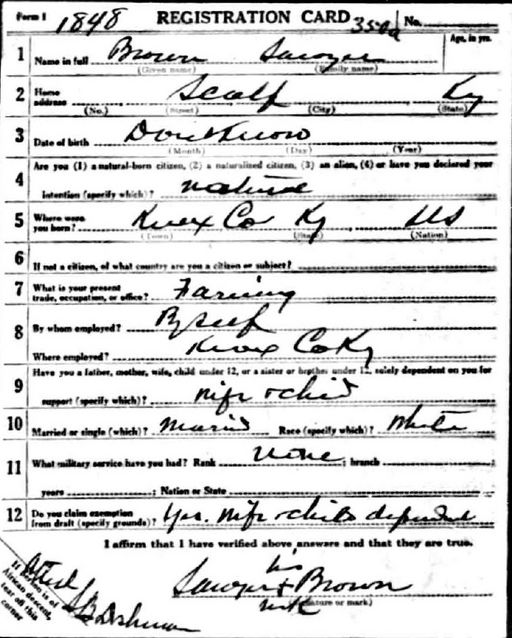 Form 1 1848 REGISTRATION CARD 3500 No.
Age, in yrs.
1 Name in full Brown Sawyer
(Given name) (Family name)
2 Home address Scalf Ky
(No.) (Street) (City) (State)
3 Date of birth Dont Know
(Month) (Day) (Year)
Are you (1) a natural-born citizen, (2) a naturalized citizen, (3) an alien, (4) or have you declared your
4 intention (specify which)? natural
5 Where were you born? Knox Co Ky US
(Town) (State) (Nation)
6 If not a citizen, of what country are you a citizen or subject?
7 What is your present trade, occupation, or office? Farming
8 By whom employed? By self
Where employed? Knox Co Ky
Have you a father, mother, wife, child under 12, or a sister or brother under 12, solely dependent on you for
9 support (specify which)? wife & child
10 Married or single (which)? Married Race (specify which)? White
11 What military service have you had? Rank None ; branch
years ; Nation or State
12 Do you claim exemption from draft (specify grounds)? Yes. wife & child dependent
I affirm that I have verified above answers and that they are true.
his
Sawyer x Brown
mark (Signature or mark)
If person is of
African descent,
tear off this
corner
Attest